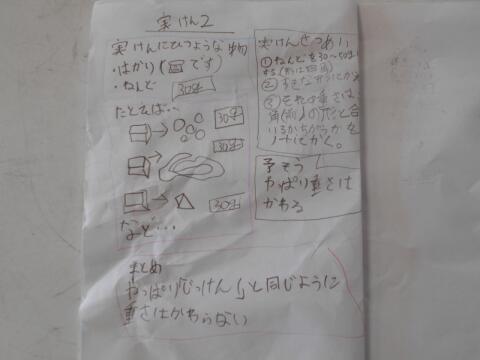 実けん2
実けんにひつような物
・はかり(です)
・ねんど 30g
たとえば…
30g
30g
30g
など…
実けんせつめい
①ねんどを30～50g
③その重さは、
ノートにかく。
予そう
やっぱり重さは
かわる
まとめ
やっぱり「じっけん1」と同じように
重さはかわらない